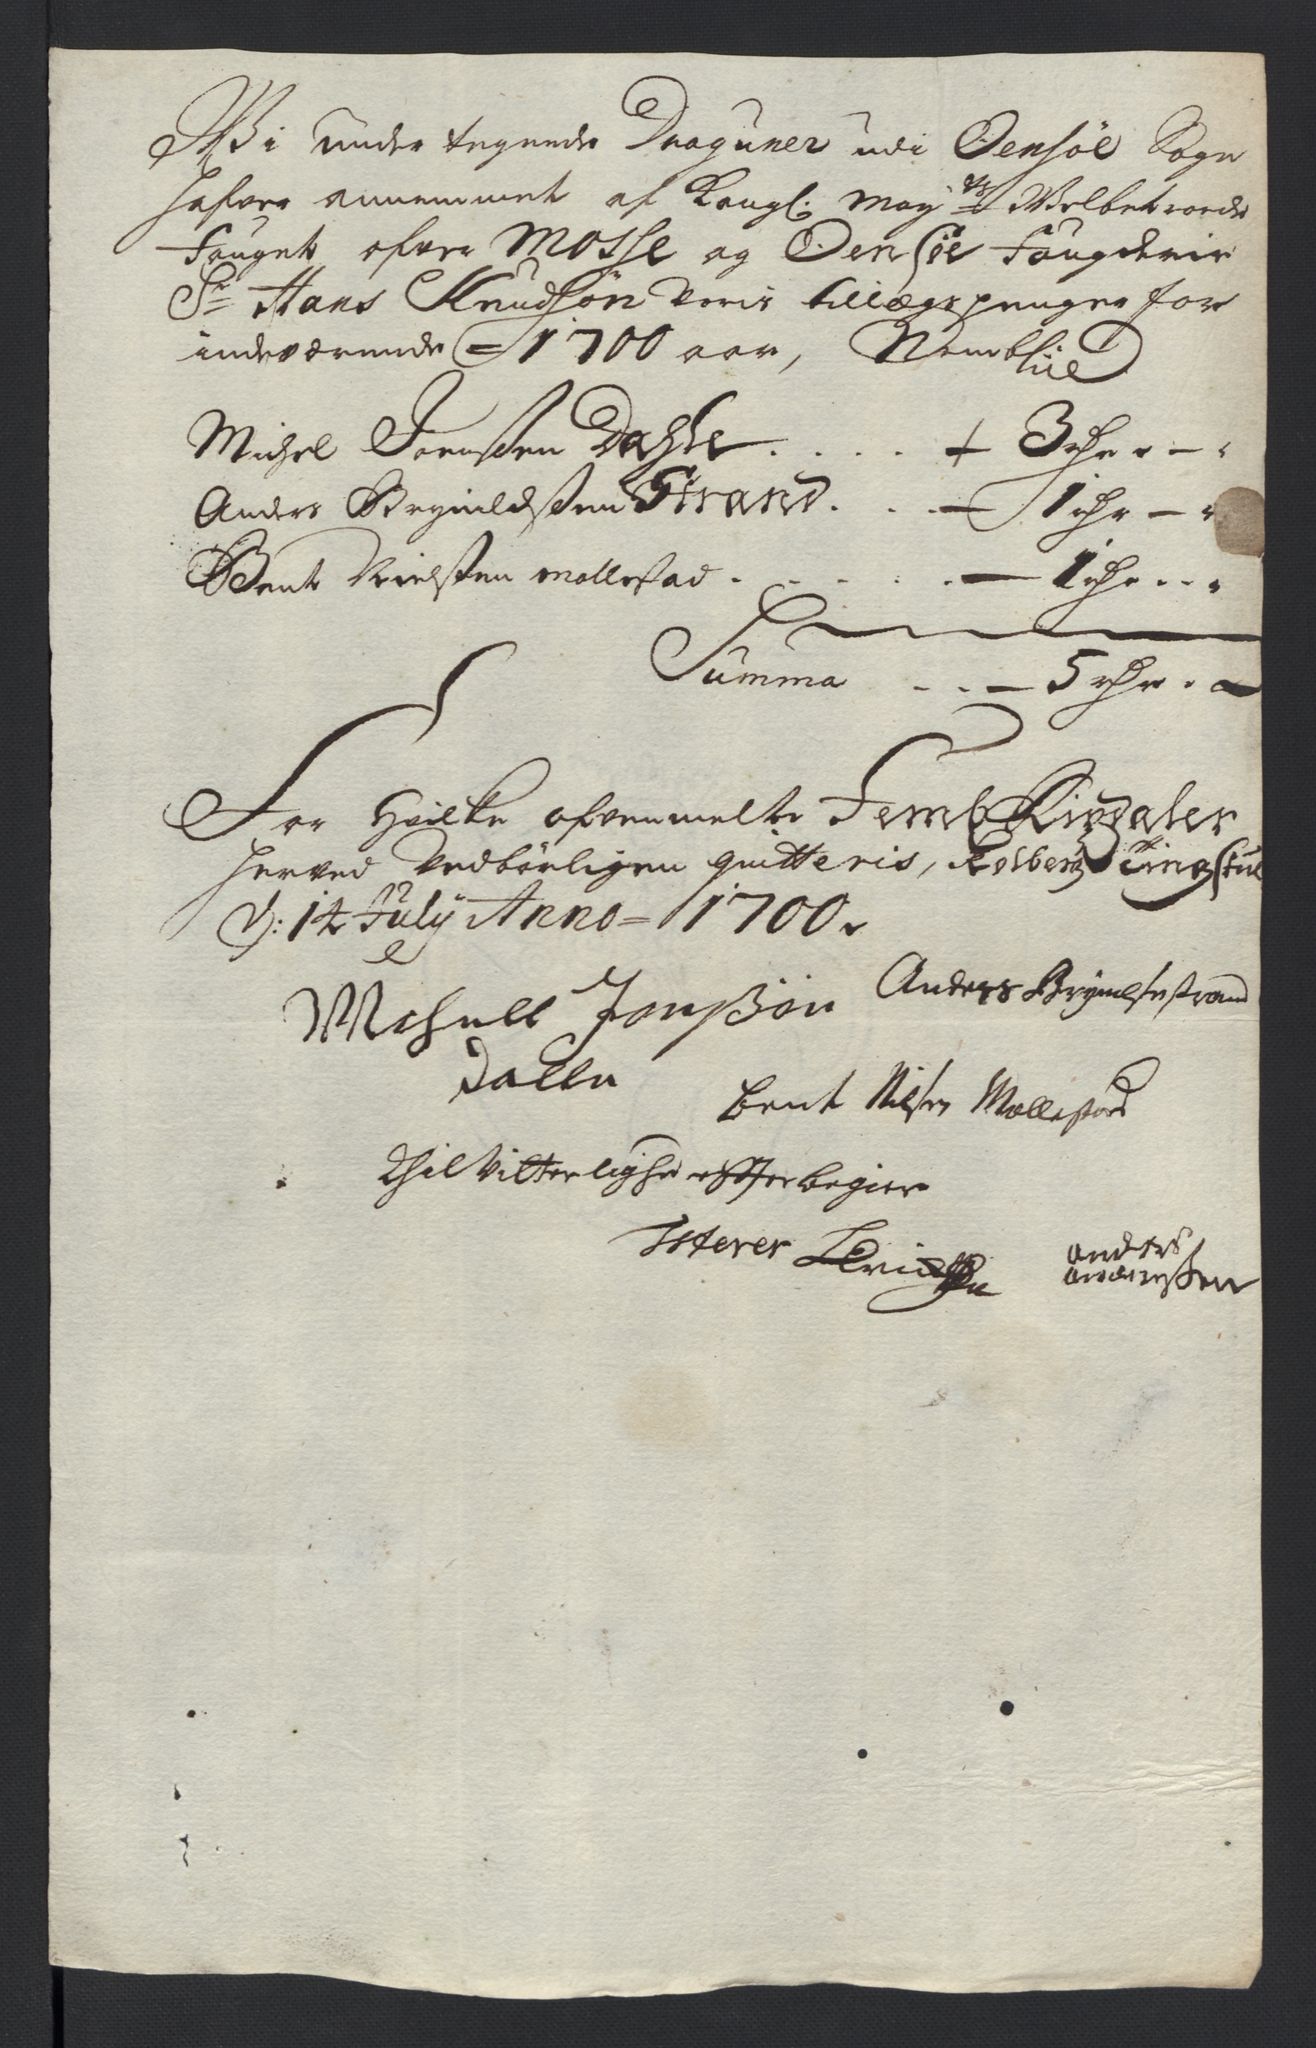 Wi under tegnede Draguner udi Oensøe Sogn
hafver annemmet af Kongl: May: ts Welbetroede
Fouget ofver Mosse og Oensøe Fougderie
Sr Hans Knudsøn voris tillegspenger for
indeværende 1700 aar, Nemblig
Michel Joensen Dahle . . . . + 3 rdr - -
Anders Brynildsen Strand . . . - 1 rdr - -
Bent Nielsen mollestad . . . . . - 1 rdr - -
Summa . . - 5 rdr . -
For hvilke ofvenmelte Femb Rixdaler
herved vedbørligen quitteris, Kolberg Tingstue
d: 14 July Anno = 1700
Michell Jonsøn Anders Brynelsen strand
Dalle
bent Nilsen Mollestad
Thil vitterlighed effter begier
Lvridsen anders
andersen